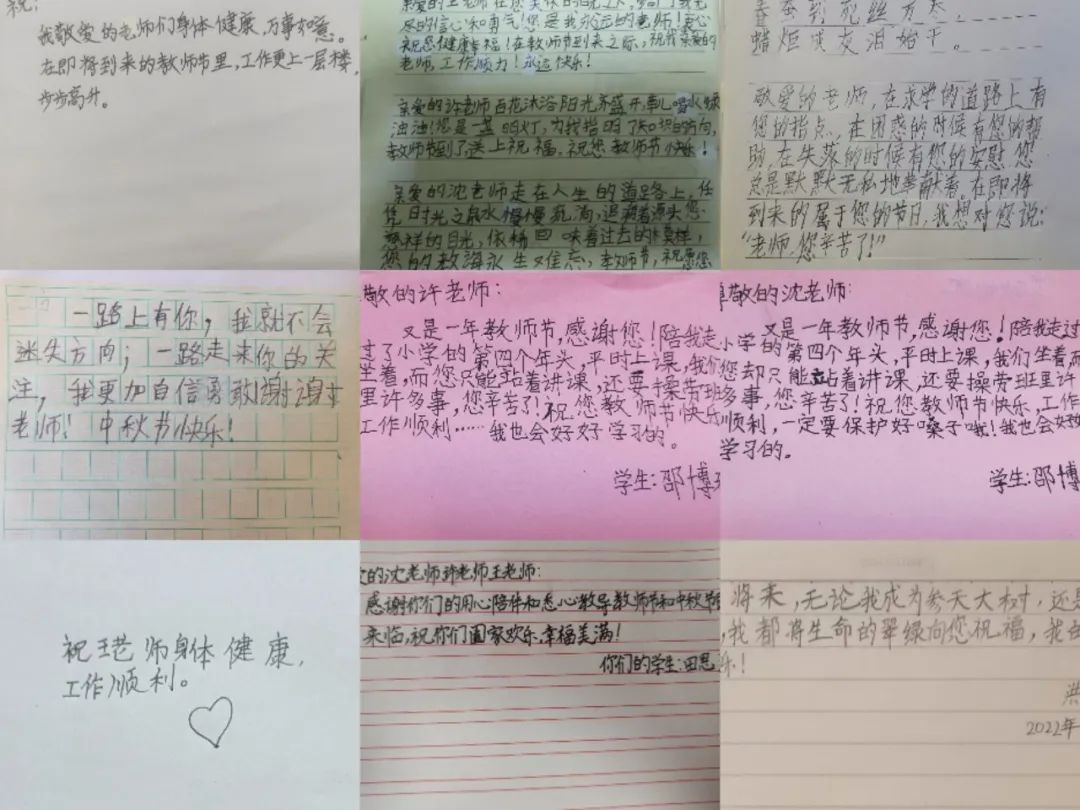 祝:
我敬爱的老师们身体健康,万事如意。
在即将到来的教师节里,工作更上一层楼,
步步高升。
尽的信心和勇气!您是我永远的老师!衷心
祝您健康幸福!在教师节到来之际,祝我亲爱的
老师,工作顺力!永远快乐!
亲爱的许老师百花沐浴阳光齐盛开,
油油!您是一盏明灯,为我指明了知识的方向,
教师节到了送上祝福,祝您教师节快乐!
亲爱的沈老师走在人生的道路上,任
凭时光之泉水慢慢流淌,追溯着源头您
慈祥的目光,依稀回味着过去的模样,
您的教诲永生又难忘,教师节,祝愿您
春蚕到死丝方尽,
蜡炬成灰泪始干。
敬爱的老师,在求学的道路上有
您的指点,在困惑的时候有您的帮
助,在失落的时候有您的安慰,您
总是默默无私地奉献着。在即将
到来的属于您的节日,我想对您说:
“老师,您辛苦了!”
一路上有你,我就不会
迷失方向;一路走来你的关
注,我更加自信勇敢谢谢
老师!中秋节快乐!
敬的许老师:
又是一年教师节,感谢您!陪我走
过了小学的第四个年头,平时上课,我们
坐着,而您只能站着讲课,还要操劳班
里许多事,您辛苦了!祝您教师节快乐
工作顺利……我也会好好学习的。
学生:邵博
敬的沈老师:
又是一年教师节,感谢您!陪我走过
小学的第四个年头,平时上课,我们坐着而
您却只能站着讲课,还要操劳班里许
多事,您辛苦了!祝您教师节快乐,工作
顺利,一定要保护好嗓子哦!我也会好好
学习的。
学生:邵博
祝王老师身体健康,
工作顺利。
的沈老师许老师王老师:
感谢你们的用心陪伴和悉心教导教师节和中秋节
来临,祝你们阖家欢乐,幸福美满!
你们的学生:田思
将来,无论我成为参天大树,还是
,我都将生命的翠绿向您祝福,我
乐!
洪
2022年